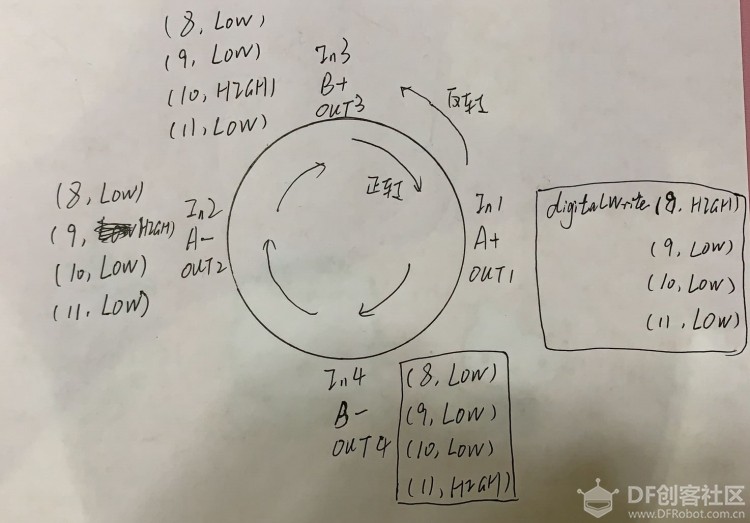 (8, LOW)
(9, LOW)
(10, HIGH)
(11, LOW)
In3
B+
OUT3
反转
正转
(8, LOW)
(9, HIGH)
(10, LOW)
(11, LOW)
In2
A-
OUT2
In1
A+
OUT1
digitalWrite (8, HIGH)
(9, LOW)
(10, LOW)
(11, LOW)
In4
B-
OUT4
(8, LOW)
(9, LOW)
(10, LOW)
(11, HIGH)
DF创客社区
www.DFRobot.com.cn